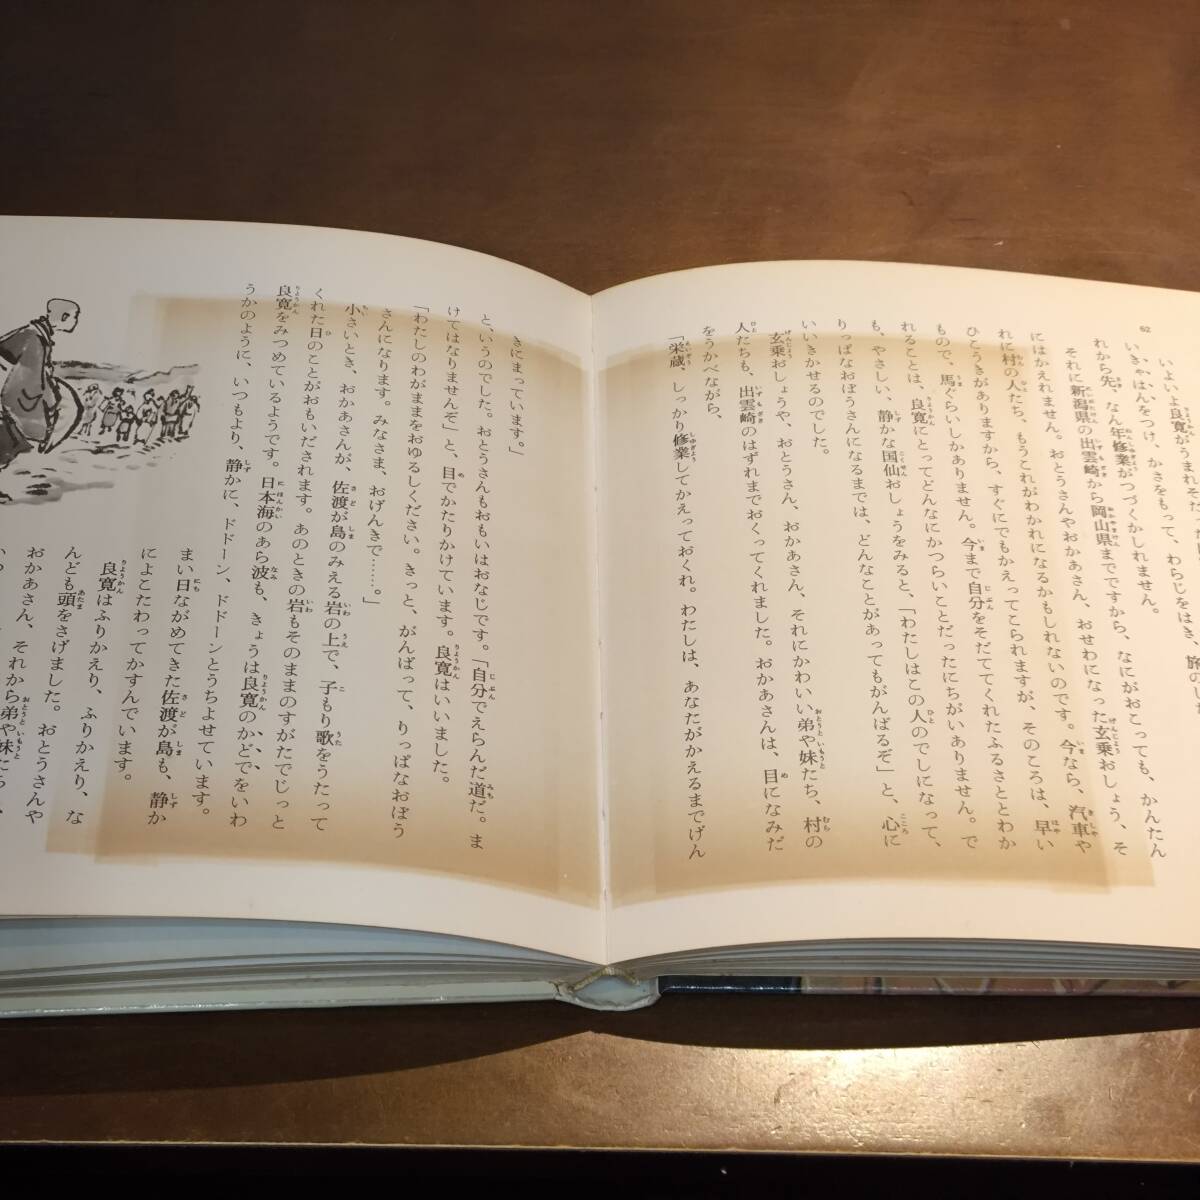 62
いよいよ良寛がうまれそだっ
いきゃはんをつけ、かさをもって、わらじをはき、旅の
れから先、なん年修業がつづくかしれません。
それに新潟県の出雲崎から岡山県までですから、なにがおこっても、かんたん
にはかえれません。おとうさんやおかあさん、おせわになった玄乗おしょう、そ
れに村の人たち、もうこれがわかれになるかもしれないのです。今なら、汽車や
ひこうきがありますから、すぐにでもかえってこられますが、そのころは、早い
もので、馬ぐらいしかありません。今まで自分をそだててくれたふるさととわか
れることは、良寛にとってどんなにかつらいことだったにちがいありません。で
も、やさしい、静かな国仙おしょうをみると、「わたしはこの人のでしになって、
りっぱなおぼうさんになるまでは、どんなことがあってもがんばるぞ」と、心に
いいきかせるのでした。
玄乗おしょうや、おとうさん、おかあさん、それにかわいい弟や妹たち、村の
人たちも、出雲崎のはずれまでおくってくれました。おかあさんは、目になみだ
をうかべながら、
「栄蔵、しっかり修業してかえっておくれ。わたしは、あなたがかえるまでげん
きにまっています。」
と、いうのでした。おとうさんもおもいはおなじです。「自分でえらんだ道だ。ま
けてはなりませんぞ」と、目でかたりかけています。良寛はいいました。
「わたしのわがままをおゆるしください。きっと、がんばって、りっぱなおぼう
さんになります。みなさま、おげんきで……。」
小さいとき、おかあさんが、佐渡が島のみえる岩の上で、子もり歌をうたって
くれた日のことがおもいだされます。あのときの岩もそのままのすがたでじっと
良寛をみつめているようです。日本海のあら波も、きょうは良寛のかどでをいわ
うかのように、いつもより、静かに、ドドーン、ドドーンとうちよせています。
まい日ながめてきた佐渡が島も、静か
によこたわってかすんでいます。
良寛はふりかえり、ふりかえり、な
んども頭をさげました。おとうさんや
おかあさん、それから弟や妹たち、